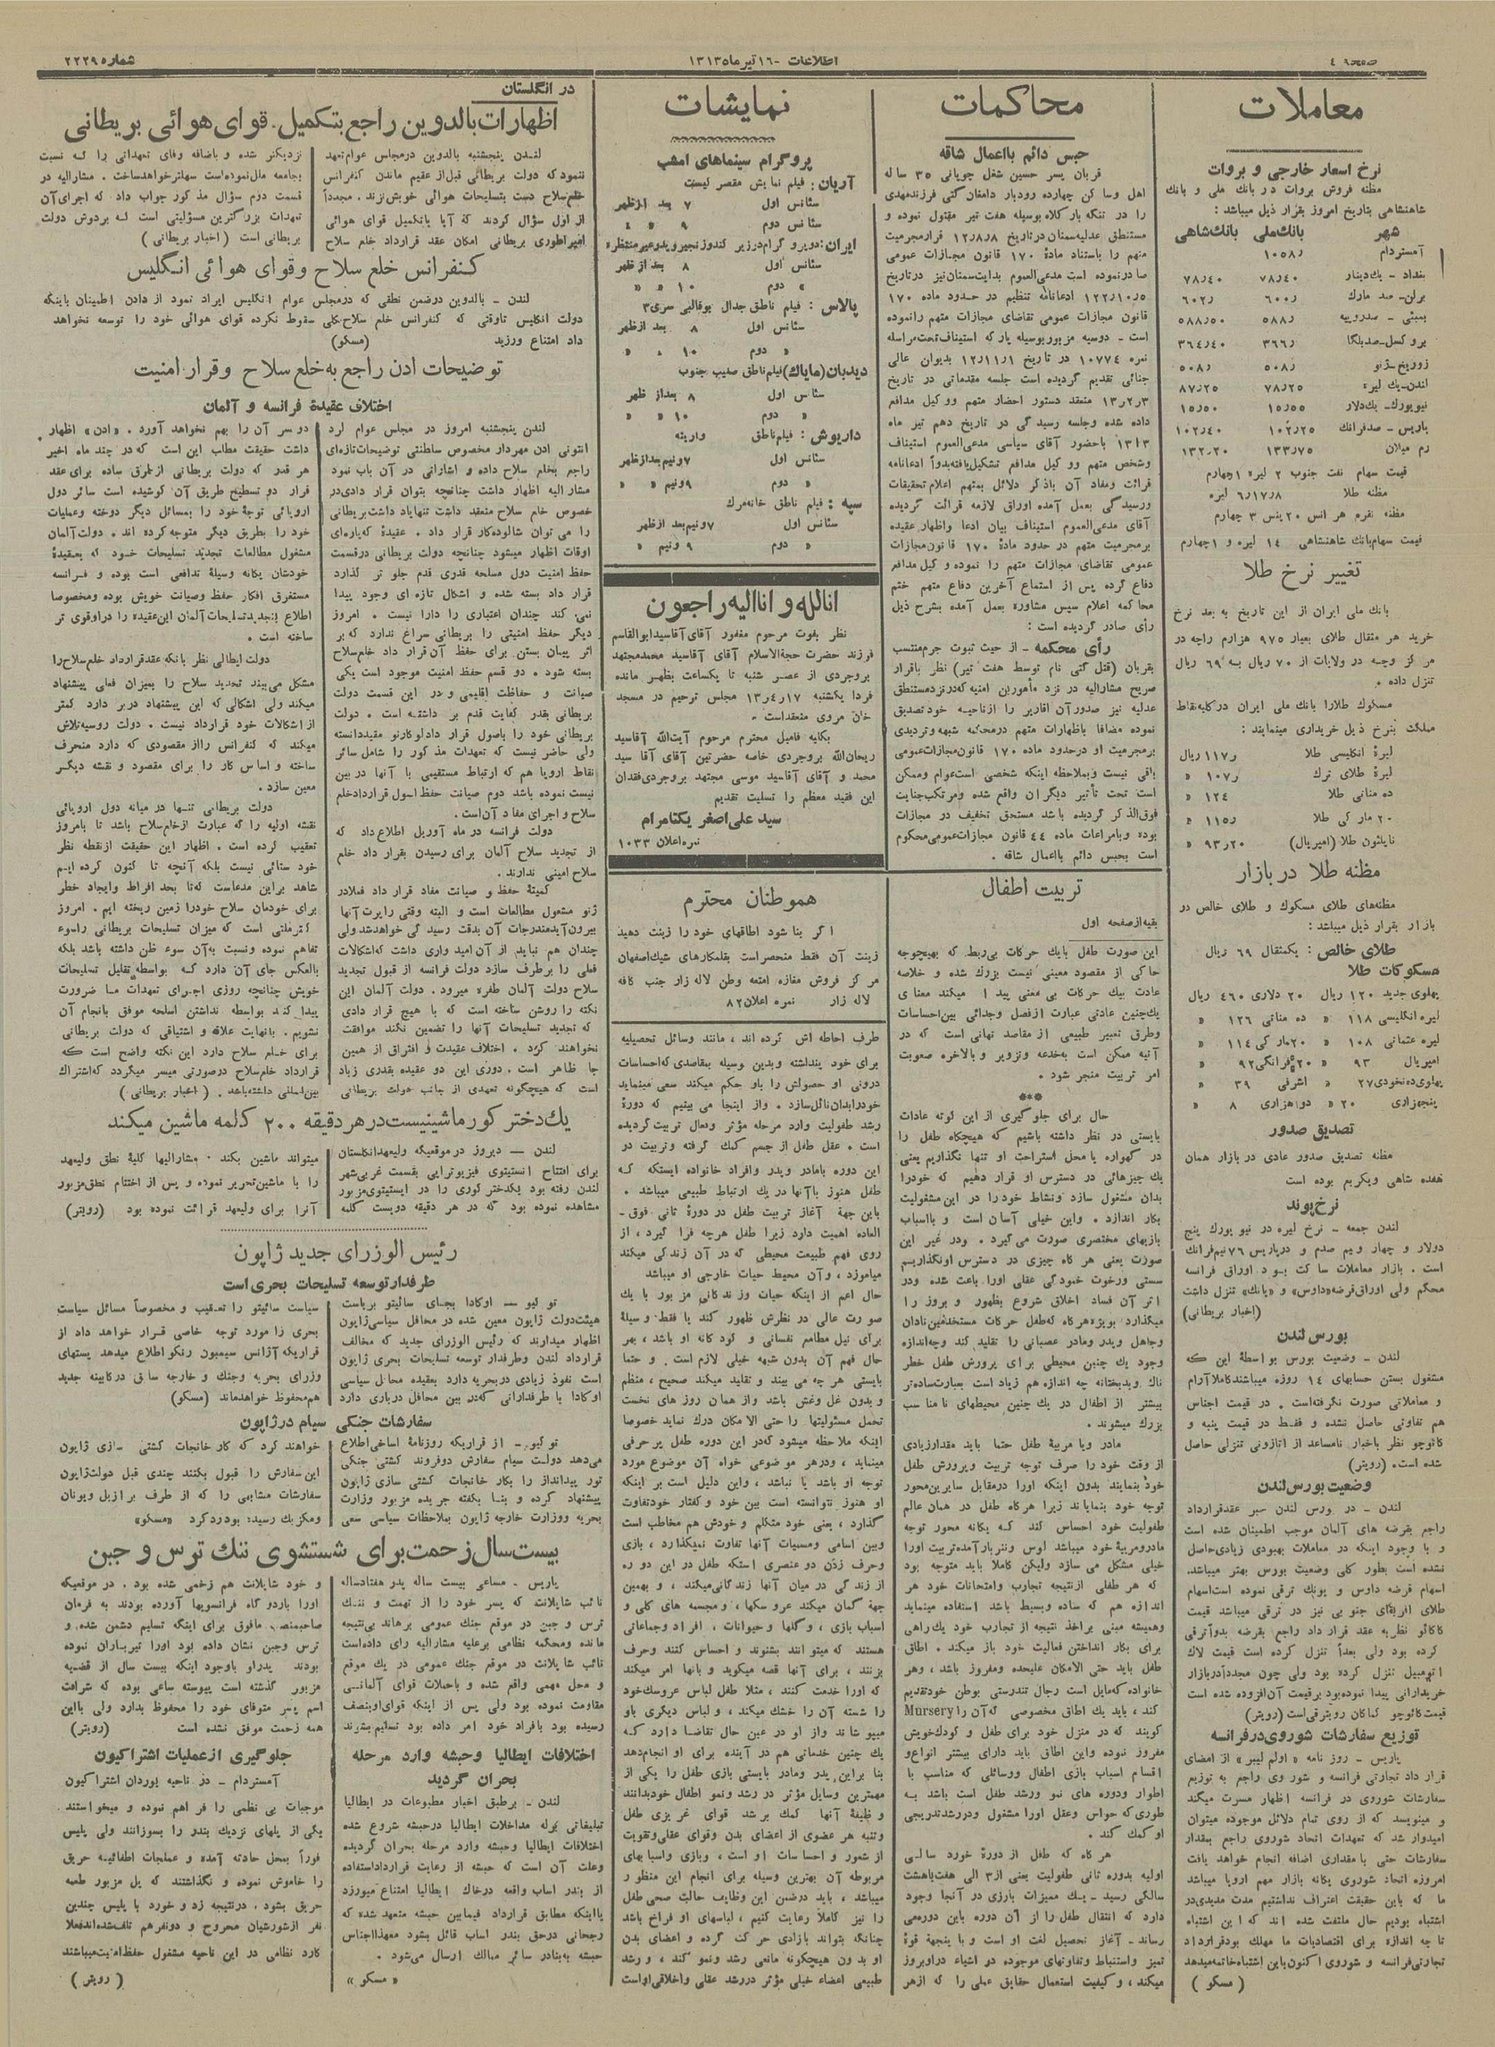 صفحه ٤
اطلاعات - ١٦ تیر ماه ١٣١٣
شماره ٢٢٢٩
معاملات
نرخ اسعار خارجی و بروات
مظنه فروش بروات در بانك ملی و بانك
شاهنشاهی بتاریخ امروز بقرار ذیل میباشد :
شهر بانك‌ملی بانك‌شاهی
آمستردام ١٠٥٨ر
بغداد - یك‌دینار ٧٨ر٤٠ ٧٨ر٤٠
برلن - صد مارك ٦٠٠ر ٦٠٢ر
بمبئی - صدروپیه ٥٨٨ر ٥٨٨ر٥٠
بروکسل - صدبلگا ٣٦٦ر ٣٦٤ر٤٠
زوریخ - ژنو ٥٠٨ر ٥٠٨ر
لندن - یك لیره ٧٨ر٢٥ ٨٧ر٢٥
نیویورك - یك‌دلار ١٥ر٥٥ ١٥ر٥٠
پاریس - صدفرانك ١٠٢ر٢٥ ١٠٢ر٤٠
رم میلان ١٣٣ر٧٥ ١٣٢ر٢٠
قیمت سهام نفت جنوب ٢ لیره ١ چهارم
مظنه طلا ٦ر١٧ر٨ لیره
مظنه نقره هر انس ٢٠ پنس ٣ چهارم
قیمت سهام بانك شاهنشاهی ١٤ لیره و ١ چهارم
تغییر نرخ طلا
بانك ملی ایران از این تاریخ به بعد نرخ
خرید هر مثقال طلای بعیار ٩٧٥ هزارم راچه در
مرکز وچه در ولایات از ٧٠ ریال به ٦٩ ریال
تنزل داده .
مسکوك طلارا بانك ملی ایران در کلیه نقاط
مملکت بنرخ ذیل خریداری مینمایند :
لیرۀ انگلیسی طلا ١١٧ر ریال
لیرۀ طلای ترك ١٠٧ر «
ده مناتی طلا ١٢٤ «
٢٠ مارکی طلا ١١٥ر «
ناپلئون طلا (امپریال) ٩٣ر٢٠ «
مظنه طلا در بازار
مظنه‌های طلای مسکوك و طلای خالص در
بازار بقرار ذیل میباشد :
طلای خالص : یکمثقال ٦٩ ریال
مسکوکات طلا
پهلوی جدید ١٢٠ ریال ٢٠ دلاری ٤٦٠ ریال
لیره انگلیسی ١١٨ « ده مناتی ١٢٦ «
لیره عثمانی ١٠٨ « ٢٠مارکی ١١٤ «
امپریال ٩٣ « ٢٠فرانکی ٩٢ «
پهلوی ده نخودی ٢٧ « اشرفی ٣٩ «
پنجهزاری ٢٠ « دوهزاری ٨ «
تصدیق صدور
مظنه تصدیق صدور عادی در بازار همان
هفده شاهی ویکربم بوده است
نرخ پوند
لندن جمعه - نرخ لیره در نیو یورك پنج
دولار و چهار ونیم صدم و درپاریس ٧٦ نیم فرانك
است . بازار معاملات ساکت بود اوراق فرانسه
محکم ولی اوراق قرضه «داوس» و «یانك» تنزل داشت
(اخبار بریطانی)
بورس لندن
لندن - وضعیت بورس بواسطۀ این که
مشغول بستن حسابهای ١٤ روزه میباشند کاملا آرام
و معاملاتی صورت نگرفته‌است . در قیمت اجناس
هم تفاوتی حاصل نشده و فقط در قیمت پنبه و
کائوچو نظر باخبار نامساعد از اتازونی تنزلی حاصل
شده است . (رویتر)
وضعیت بورس لندن
لندن - در بورس لندن خبر عقد قرارداد
راجع بقرضه های آلمان موجب اطمینان شده است
و با وجود اینکه در معاملات بهبودی زیادی حاصل
نشده است بطور کلی وضعیت بورس بهتر میباشد .
اسهام قرضه داوس و یونك ترقی نموده است اسهام
طلای افریقای جنوبی نیز در ترقی میباشد قیمت
کاکائو نظر به عقد قرار داد راجع بقرضه بدواً ترقی
کرده بود ولی بعداً تنزل کرده است قیمت لاك
اتومبیل تنزل کرده بود ولی چون مجدداً در بازار
خریدارانی پیدا نموده بود بر قیمت آن افزوده شده است
قیمت کائوچو کماکان روبترقی است (رویتر)
توزیع سفارشات شوروی در فرانسه
پاریس - روزنامه « اولم لیبر » از امضای
قرار داد تجارتی فرانسه و شوروی راجع به توزیع
سفارشات شوروی در فرانسه اظهار مسرت میکند
و مینویسد که از روی تمام دلائل موجوده میتوان
امیدوار شد که تعهدات اتحاد شوروی راجع بمقدار
سفارشات حتی با مقداری اضافه انجام خواهد یافت
امروزه اتحاد شوروی یگانه بازار مهم اروپا میباشد
ما که باین حقیقت اعتراف نداشتیم مدت مدیدی در
اشتباه بودیم حال ملتفت شده اند که این اشتباه
تا چه اندازه برای اقتصادیات ما مهلك بود قرارداد
تجارتی فرانسه و شوروی اکنون باین اشتباه خاتمه میدهد
( مسکو )
محاکمات
حبس دائم با اعمال شاقه
قربان پسر حسین شغل چوپانی ٣٥ ساله
اهل وساکن چهارده رودبار دامغان گتی فرزند مهدی
را در تنگه بارکلاه بوسیله هفت تیر مقتول نموده و
مستنطق عدلیه سمنان در تاریخ ١٢ر٨ر٨ قرار مجرمیت
متهم را باستناد مادۀ ١٧٠ قانون مجازات عمومی
صادر نموده است مدعی‌العموم بدایت سمنان نیز در تاریخ
١٢٢ر١٠ر٥ ادعانامه تنظیم در حدود ماده ١٧٠
قانون مجازات عمومی تقاضای مجازات متهم را نموده
است - دوسیه مزبور بوسیله پارکه استیناف تحت مراسله
نمره ١٠٧٧٤ در تاریخ ١٢ر١١ر١ بدیوان عالی
جنائی تقدیم گردیده است جلسه مقدماتی در تاریخ
١٣ر٢ر٣ منعقد دستور احضار متهم ووکیل مدافع
داده شده وجلسه رسیدگی در تاریخ دهم تیر ماه
١٣١٣ باحضور آقای سیاسی مدعی‌العموم استیناف
وشخص متهم ووکیل مدافع تشکیل یافته بدواً ادعانامه
قرائت ومفاد آن باذکر دلائل بمتهم اعلام تحقیقات
ورسیدگی بعمل آمده اوراق لازمه قرائت گردیده
آقای مدعی‌العموم استیناف بیان ادعا واظهار عقیده
بر مجرمیت متهم در حدود مادۀ ١٧٠ قانون مجازات
عمومی تقاضای مجازات متهم را نموده و کیل مدافع
دفاع کرده پس از استماع آخرین دفاع متهم ختم
محاکمه اعلام سپس مشاوره بعمل آمده بشرح ذیل
رأی صادر گردیده است :
رأی محکمه - از حیث ثبوت جرم منتسب
بقربان (قتل گتی نام توسط هفت تیر) نظر باقرار
صریح مشارالیه در نزد مأمورین امنیه که در نزد مستنطق
عدلیه نیز صدور آن اقاریر را ازناحیه خود تصدیق
نموده مضافا باظهارات متهم در محکمه شبهه وتردیدی
بر مجرمیت او در حدود ماده ١٧٠ قانون مجازات عمومی
باقی نیست و بملاحظه اینکه شخصی است عوام وممکن
است تحت تأثیر دیگران واقع شده ومرتکب جنایت
فوق‌الذکر گردیده باشد مستحق تخفیف در مجازات
بوده و بامراعات ماده ٤٤ قانون مجازات عمومی محکوم
است بحبس دائم با اعمال شاقه .
تربیت اطفال
بقیه از صفحه اول
این صورت طفل بایك حرکات بی‌ربط که بهیچوجه
حاکی از مقصود معینی نیست بزرك شده و خلاصه
عادت بیك حرکات بی معنی پیدا میکند معنای
یك‌چنین عادتی عبارت ازفصل وجدائی بین‌احساسات
وطرق تعبیر طبیعی از مقاصد نهانی است که در
آتیه ممکن است به‌خدعه وتزویر و بالاخره صعوبت
امر تربیت منجر شود .
***
حال برای جلوگیری از این گونه عادات
بایستی در نظر داشته باشیم که هیچگاه طفل را
در گهواره یا محل استراحت او تنها نگذاریم یعنی
یك چیزهائی در دسترس او قرار دهیم که خودرا
بدان مشغول سازد ونشاط خود را در این مشغولیت
بکار اندازد . واین خیلی آسان است و بااسباب
بازیهای مختصری صورت میگیرد . ودر غیر این
صورت یعنی هرگاه چیزی در دسترس اونگذاریم
سستی ورخوت خمودگی عقلی اورا باعث شده ودر
اثر آن فساد اخلاق شروع بظهور و بروز را
میگذارد بویژه هرگاه طفل حرکات مستخدمین نادان
وجاهل وپدر ومادر عصبانی را تقلید کند وچه‌اندازه
وجود یك چنین محیطی برای پرورش طفل خطر
ناك وبدبختانه چه اندازه هم زیاد است بعبارت ساده‌تر
بیشتر از اطفال در یك چنین محیطهای نامناسب
بزرك میشوند .
مادر ویا مربیۀ طفل حتما باید مقدار زیادی
از وقت خود را صرف توجه تربیت وپرورش طفل
خود بنمایند بدون اینکه اورا در مقابل سایرین محور
توجه خود بنمایاند زیرا هرگاه طفل در همان عالم
طفولیت خود احساس کند که یگانه محور توجه
مادر ومربیۀ خود میباشد لوس وننر بار آمده تربیت اورا
خیلی مشکل می سازد ولیکن کاملا باید متوجه بود
که هر طفلی ازنتیجه تجارب وامتحانات خود هر
اندازه هم که ساده وبسیط باشد استفاده مینماید
وهمیشه مبنی براخذ نتیجه از تجارب خود یك راهی
برای بکار انداختن فعالیت خود باز میکند . اطاق
طفل باید حتی الامکان علیحده ومفروز باشد ، وهر
خانواده که‌مایل است رجال تندرستی بوطن خود تقدیم
کند ، باید یك اطاق مخصوصی که آن را Mursery
گویند که در منزل خود برای طفل و کودك خویش
مفروز نموده واین اطاق باید دارای بیشتر انواع و
اقسام اسباب بازی اطفال ووسائلی که مناسب با
اطوار ودوره های نمو ورشد طفل است باشد به
طوری که حواس وعقل اورا مشغول ودر رشد تدریجی
او کمك کند .
هرگاه که طفل از دورۀ خورد سالی
اولیه بدوره ثانی طفولیت یعنی از ٣ الی هفت یا هشت
سالگی رسید - یك ممیزات بارزی در آنجا وجود
دارد که انتقال طفل را از آن دوره باین دوره می
رساند - آغاز تحصیل لغت او است و با پنجهۀ قوۀ
تمیز واستنباط وتفاوتهای موجوده در اشیاء در او بروز
میکند ، و کیفیت استعمال حقایق عملی را که از هر
نمایشات
پروگرام سینماهای امشب
آریان : فیلم نمایش مقصر کیست
سئانس اول ٧ بعد از ظهر
سئانس دوم ٩ « «
ایران : دو پروگرام در زیر کندوز نجیر وید وغیر منتظره
سئانس اول ٨ بعد از ظهر
« دوم ١٠ « «
پالاس : فیلم ناطق جدال بوفالبی سری ٣
سئانس اول ٨ بعد از ظهر
« دوم ١٠ « «
دیدبان (مایاك) فیلم ناطق صلیب جنوب
سئانس اول ٨ بعد از ظهر
« دوم ١٠ « «
داریوش : فیلم ناطق واریته
سئانس اول ٧ونیم بعد از ظهر
« دوم ٩ونیم « «
سپه : فیلم ناطق خانه مرك
سئانس اول ٧ونیم بعد از ظهر
« دوم ٩ ونیم « «
انالله و اناالیه راجعون
نظر بفوت مرحوم مغفور آقای آقاسید ابوالقاسم
فرزند حضرت حجةالاسلام آقای آقاسید محمد مجتهد
بروجردی از عصر شنبه تا یکساعت بظهر مانده
فردا یکشنبه ١٧ر٤ر١٣ مجلس ترحیم در مسجد
خان مروی منعقد است .
بکلیه فامیل محترم مرحوم آیت‌الله آقاسید
ریحان‌الله بروجردی خاصه حضرتین آقای آقا سید
محمد و آقای آقاسید موسی مجتهد بروجردی فقدان
این فقید معظم را تسلیت تقدیم
سید علی اصغر یکتامرام
نمره اعلان ١٠٣٣
هموطنان محترم
اگر بنا شود اطاقهای خود را زینت دهید
زینت آن فقط منحصر است بقلمکارهای شیك اصفهان
مرکز فروش مغازه امتعه وطن لاله زار جنب کافه
لاله زار نمره اعلان ٨٢
طرف احاطه اش کرده اند ، مانند وسائل تحصیلیه
برای خود پنداشته وبدین وسیله بمقاصدی که احساسات
درونی او حصولش را باو حکم میکند سعی مینماید
خودرا بدان نائل سازد . واز اینجا می بینیم که دورۀ
رشد طفولیت وارد مرحله مؤثر وفعال تربیت گردیده
است . عقل طفل از جسم کمك گرفته و تربیت در
این دوره بامادر وپدر وافراد خانواده ایستکه که
طفل هنوز باآنها در یك ارتباط طبیعی میباشد .
باین جهة آغاز تربیت طفل در دورۀ ثانی فوق -
العاده اهمیت دارد زیرا طفل هرچه فرا گیرد ، از
روی فهم طبیعت محیطی که در آن زندگی میکند
میاموزد ، وآن محیط حیات خارجی او میباشد
حال اعم از اینکه حیات وزندگانی مزبور با یك
صورت عالی در نظرش ظهور کند یا فقط وسیلۀ
برای نیل مطامع نفسانی و کودکانه او باشد ، بهر
حال فهم آن بدون شبهه خیلی لازم است . و حتما
بایستی هرچه می بیند و تقلید میکند صحیح ، منظم
و بدون غل وغش باشد واز همان روز های نخست
تحمل مسئولیتها را حتی الامکان درك نماید خصوصا
اینکه ملاحظه میشود که در این دوره طفل پرحرفی
مینماید ، ودرهر موضوعی خواه آن موضوع مورد
توجه او باشد یا نباشد ، واین دلیل است بر اینکه
او هنوز نتوانسته است بین خود و گفتار خود تفاوت
گذارد ، یعنی خود متکلم و خودش هم مخاطب است
وبین اسامی ومسمیات آنها تفاوت نمیگذارد ، بازی
وحرف زدن دو عنصری استکه طفل در این دوره
از زندگی در میان آنها زندگانی میکند ، و بهمین
جهة گمان میکند عروسکها ، ومجسمه های گلی و
اسباب بازی ، و گلها و حیوانات ، افراد وجماعاتی
هستند که میتوانند بشنوند و احساس کنند وحرف
بزنند ، برای آنها قصه میگوید و بانها امر میکند
که اورا خدمت کنند ، مثلا طفل لباس عروسك خود
را شسته آن را خشك میکند ، و لباس دیگری باو
میپوشاند واز او در عین حال تقاضا دارد که
یك چنین خدماتی هم در آینده برای او انجام دهد
بنا براین پدر ومادر بایستی بازی طفل را یکی از
مهمترین وسایل مؤثر در رشد ونمو اطفال خود بدانند
و ظیفۀ آنها کمك برشد قوای غریزی طفل
وتنبه هر عضوی از اعضای بدن وقوای عقلی وتقویت
از شعور و احساسات او است ، وبازی واسبابهای
مربوطه آن بهترین وسیله برای انجام این منظور
میباشد ، باید درضمن این وظایف حالت صحی طفل
را نیز کاملا رعایت کنیم ، لباسهای او فراخ باشد
چنانکه بتواند بازادی حرکت کرده و اعضای بدن
او بدون هیچگونه مانعی رشد ونمو کند ، و رشد
طبیعی اعضاء خیلی مؤثر در رشد عقلی واخلاقی اوست
در انگلستان
اظهارات بالدوین راجع بتکمیل قوای هوائی بریطانی
لندن پنجشنبه بالدوین در مجلس عوام تعهد
ننمود که دولت بریطانی قبل از عقیم ماندن کنفرانس
خلع سلاح دست بتسلیحات هوائی خویش نزند . مجدداً
از اول سؤال کردند که آیا باتکمیل قوای هوائی
امپراطوری بریطانی امکان عقد قرارداد خلع سلاح
نزدیکتر شده و باضافه وفای تعهداتی را که نسبت
بجامعه ملل نموده است سهلتر خواهد ساخت . مشارالیه در
قسمت دوم سؤال مذکور جواب داد که اجرای آن
تعهدات بزرگترین مسؤلیتی است که بردوش دولت
بریطانی است ( اخبار بریطانی )
کنفرانس خلع سلاح وقوای هوائی انگلیس
لندن - بالدوین درضمن نطقی که در مجلس عوام انگلیس ایراد نمود از دادن اطمینان باینکه
دولت انگلیس تاوقتی که کنفرانس خلع سلاح بکلی سقوط نکرده قوای هوائی خود را توسعه نخواهد
داد امتناع ورزید (مسکو)
توضیحات ادن راجع به خلع سلاح وقرار امنیت
اختلاف عقیدۀ فرانسه و آلمان
لندن پنجشنبه امروز در مجلس عوام لرد
انتونی ادن مهردار مخصوص سلطنتی توضیحات تازه‌ای
راجع بخلع سلاح داده و اشاراتی در آن باب نمود
مشارالیه اظهار داشت چنانچه بتوان قرار دادی در
خصوص خلع سلاح منعقد داشت تنهاباد داشت بریطانی
را می توان شالوده کار قرار داد . عقیدۀ که پاره‌ای
اوقات اظهار میشود چنانچه دولت بریطانی در قسمت
حفظ امنیت دول مسلحه قدری قدم جلو تر گذارد
قرار داد بسته شده و اشکال تازه ای وجود پیدا
نمی کند چندان اعتباری را دارا نیست . امروز
دیگر حفظ امنیتی را بریطانی سراغ ندارد که بر
اثر پیمان بستن برای حفظ آن قرار داد خلع سلاح
بسته شود . دو قسم حفظ امنیت موجود است یکی
صیانت و حفاظت اقلیمی ودر این قسمت دولت
بریطانی بقدر کفایت قدم بر داشته است . دولت
بریطانی خود را باصول قرار دادلوکارنو مقید دانسته
ولی حاضر نیست که تعهدات مذکور را شامل سائر
نقاط اروپا هم که ارتباط مستقیمی با آنها در بین
نیست نموده باشد دوم صیانت حفظ اصول قرارداد خلع
سلاح و اجرای مفاد آن است .
دولت فرانسه در ماه آوریل اطلاع داد که
از تجدید سلاح آلمان برای رسیدن بقرار داد خلع
سلاح امینی ندارند .
کمیتۀ حفظ و صیانت مفاد قرار داد فعلا در
ژنو مشغول مطالعات است و البته وقتی راپرت آنها
بیرون آید مندرجات آن بدقت رسیدگی خواهد شد ولی
چندان هم نباید از آن امید واری داشت که اشکالات
فعلی را برطرف سازد دولت فرانسه از قبول تجدید
سلاح دولت آلمان طفره میرود . دولت آلمان این
نکته را روشن ساخته است که با هیچ قرار دادی
که تجدید تسلیحات آنها را تضمین نکند موافقت
نخواهند کرد . اختلاف عقیدت و افتراق از همین
جا ظاهر است . دوری این دو عقیده بقدری زیاد
است که هیچگونه تعهدی از جانب دولت بریطانی
دو سر آن را بهم نخواهد آورد . «ادن» اظهار
داشت حقیقت مطلب این است که در چند ماه اخیر
هر قدر که دولت بریطانی ازطرق ساده برای عقد
قرار دو تسطیح طریق آن کوشیده است سائر دول
اروپائی توجۀ خود را بمسائل دیگر دوخته وعملیات
خود را بطریق دیگر متوجه کرده اند . دولت آلمان
مشغول مطالعات تجدید تسلیحات خود که بعقیدۀ
خودشان یگانه وسیلۀ تدافعی است بوده و فرانسه
مستغرق افکار حفظ وصیانت خویش بوده ومخصوصا
اطلاع بتجدید تسلیحات آلمان این عقیده را در او قوی تر
ساخته است .
دولت ایطالی نظر بانکه عقد قرار داد خلع سلاح را
مشکل می‌بیند تحدید سلاح را بمیزان فعلی پیشنهاد
میکند ولی اشکالی که این پیشنهاد دربر دارد کمتر
از اشکالات خود قرارداد نیست . دولت روسیه تلاش
میکند که کنفرانس رااز مقصودی که دارد منحرف
ساخته و اساس کار را برای مقصود و نقشه دیگر
معین سازد .
دولت بریطانی تنها در میانه دول اروپائی
نقشه اولیه را که عبارت از خلع سلاح باشد تا بامروز
تعقیب کرده است . اظهار این حقیقت ازنقطه نظر
خود ستائی نیست بلکه آنچه تا کنون کرده ایم
شاهد براین مدعاست که تا بحد افراط وایجاد خطر
برای خودمان سلاح خودرا زمین ریخته ایم . امروز
کمتر ملتی است که میزان تسلیحات بریطانی راسوء
تفاهم نموده ونسبت به آن سوء ظن داشته باشد بلکه
بالعکس جای آن دارد که بواسطه تقلیل تسلیحات
خویش چنانچه روزی اجرای تعهدات ما ضرورت
پیدا کند بواسطه نداشتن اسلحه موفق بانجام آن
نشویم . بانهایت علاقه و اشتیاقی که دولت بریطانی
برای خلع سلاح دارد این نکته واضح است که
قرارداد خلع سلاح درصورتی میسر میگردد که اشتراك
بین‌المللی داشته باشد . ( اخبار بریطانی )
یك دختر کور ماشینیست در هر دقیقه ٢٠٠ کلمه ماشین میکند
لندن - دیروز در موقعیکه ولیعهد انگلستان
برای افتتاح انستیتوی فیزیوتراپی بقسمت غربی شهر
لندن رفته بود یکدختر کوری را در انیستیتوی مزبور
مشاهده نموده بود که در هر دقیقه دویست کلمه
میتواند ماشین بکند . مشارالیها کلیۀ نطق ولیعهد
را با ماشین تحریر نموده و پس از اختتام نطق مزبور
آنرا برای ولیعهد قرائت نموده بود (رویتر)
رئیس الوزرای جدید ژاپون
طرفدار توسعه تسلیحات بحری است
توکیو - اوکادا بجای سائیتو بریاست
هیئت دولت ژاپون معین شده در محافل سیاسی ژاپون
اظهار میدارند که رئیس الوزرای جدید که مخالف
قرارداد لندن وطرفدار توسعه تسلیحات بحری ژاپون
است نفوذ زیادی در بحریه دارد بعقیده محافل سیاسی
اوکادا با طرفدارانی که در بین محافل درباری دارد
سیاست سائیتو را تعقیب و مخصوصاً مسائل سیاست
بحری را مورد توجه خاصی قرار خواهد داد از
قراریکه آژانس سیمبون رنگو اطلاع میدهد پستهای
وزرای بحریه وجنك و خارجه سابق در کابینه جدید
هم محفوظ خواهد ماند (مسکو)
سفارشات جنگی سیام در ژاپون
توکیو - از قراریکه روزنامۀ اساخی اطلاع
می‌دهد دولت سیام سفارش دوفروند کشتی جنگی
تورپیدانداز را بکار خانجات کشتی سازی ژاپون
پیشنهاد کرده و بنا بگفته جریده مزبور وزارت
بحریه ووزارت خارجه ژاپون بملاحظات سیاسی سعی
خواهند کرد که کارخانجات کشتی سازی ژاپون
این سفارش را قبول بکنند چندی قبل دولت ژاپون
سفارشات مشابهی را که از طرف برازیل ویونان
ومکزیك رسیده بود رد کرد «مسکو»
بیست سال زحمت برای شستشوی ننك ترس و جبن
پاریس - مساعی بیست ساله پدر هفتادساله
نائب شاپلانت که پسر خود را از تهمت و ننك
ترس و جبن در موقع جنك عمومی برهاند بی‌نتیجه
مانده ومحکمه نظامی برعلیه مشارالیه رای داده است
نائب شاپلانت در موقع جنك عمومی در یك موقع
و محل مهمی واقع شده و باحملات قوای آلمانی
مقاومت نموده بود ولی پس از اینکه قوای اوبنصف
رسیده بود بافراد خود امر داده بود تسلیم بشوند
و خود شاپلانت هم زخمی شده بود . در موقعیکه
اورا باردو گاه فرانسویها آورده بودند به فرمان
صاحبمنصب مافوق برای اینکه تسلیم دشمن شده و
ترس وجبن نشان داده بود اورا تیر باران نموده
بودند پدر او باوجود اینکه بیست سال از قضیه
مزبور گذشته است پیوسته ساعی بوده که شرافت
اسم پسر متوفای خود را محفوظ بدارد ولی بااین
همه زحمت موفق نشده است (رویتر)
اختلافات ایطالیا وحبشه وارد مرحله
بحران گردید
لندن - برطبق اخبار مطبوعات در ایطالیا
تبلیغاتی برله مداخلات ایطالیا درحبشه شروع شده
اختلافات ایطالیا وحبشه وارد مرحله بحران گردیده
وعلت آن است که حبشه از رعایت قرارداد استفاده
از بندر اساب واقعه درخاك ایطالیا امتناع میورزد
بااینکه مطابق قرارداد فیمابین حبشه متعهد شده که
رجحانی درحق بندر اساب قائل بشود معهذا اجناس
حبشه به‌بنادر سائر ممالك ارسال می‌شود .
« مسکو »
جلوگیری از عملیات اشتراکیون
آمستردام - در ناحیه یوردان اشتراکیون
موجبات بی نظمی را فراهم نموده و میخواستند
یکی از پلهای نزدیك بندر را بسوزانند ولی پلیس
فوراً بمحل حادثه آمده و عملجات اطفائیه حریق
را خاموش نموده و نگذاشتند که پل مزبور طعمه
حریق بشود . درنتیجه زد و خورد با پلیس چندین
نفر ازشورشیان مجروح و دونفر هم تلف شده‌اند فعلا
گارد نظامی در این ناحیه مشغول حفظ امنیت میباشند
( رویتر )